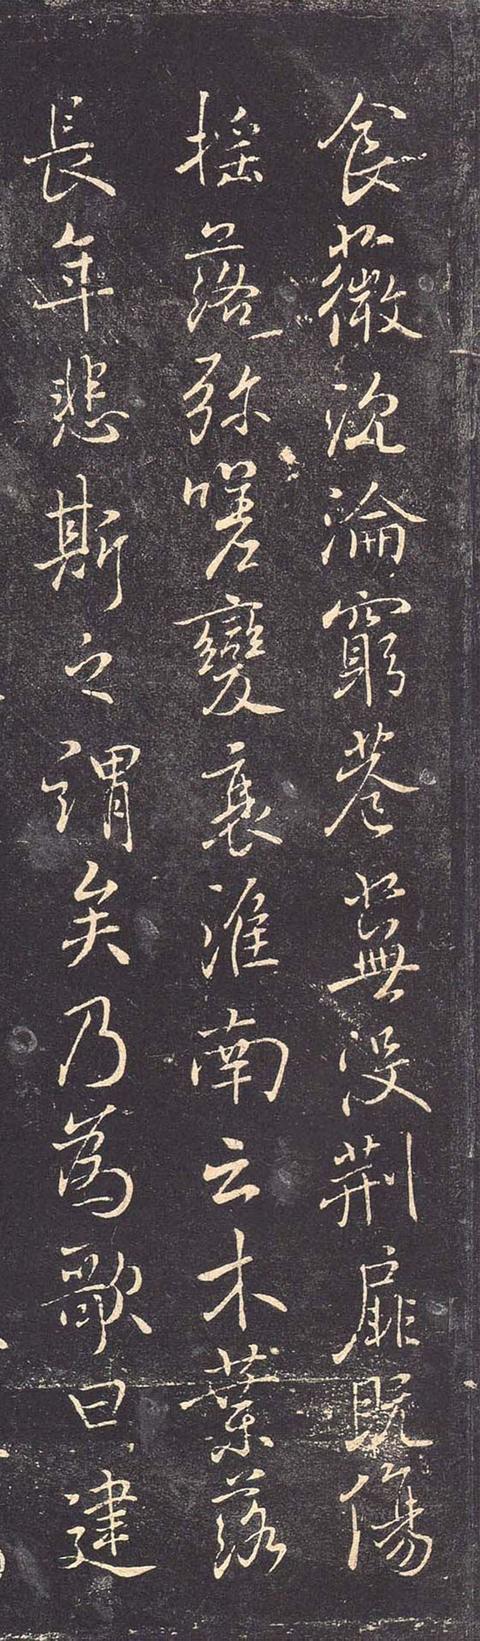 食薇沉淪窮巷蕪沒荆扉既傷
搖落弥嗟變衰淮南云木葉落
長年悲斯之謂矣乃為歌曰建